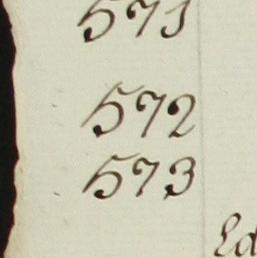 571
572
573
Ed